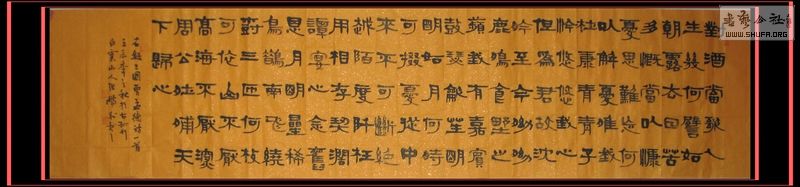 對酒當歌人
生幾何譬如
朝露去日苦
多慨當以慷
憂思難忘何
以解憂唯有
杜康青青子
衿悠悠我心
但為君故沈
吟至今呦呦
鹿鳴食野之
蘋我有嘉賓
鼓瑟龡笙明
明如月何時
可掇憂從中
來不可斷絕
越陌度阡枉
用相存契闊
讌宴心念舊
恩月明星稀
烏鵲南飛繞
樹三匝何枝
可依山不厭
高海不厭深
周公吐哺天
下歸心
右錄三國曹孟德詩一首
白雲山人
書藝公社
WWW.SHUFA.ORG